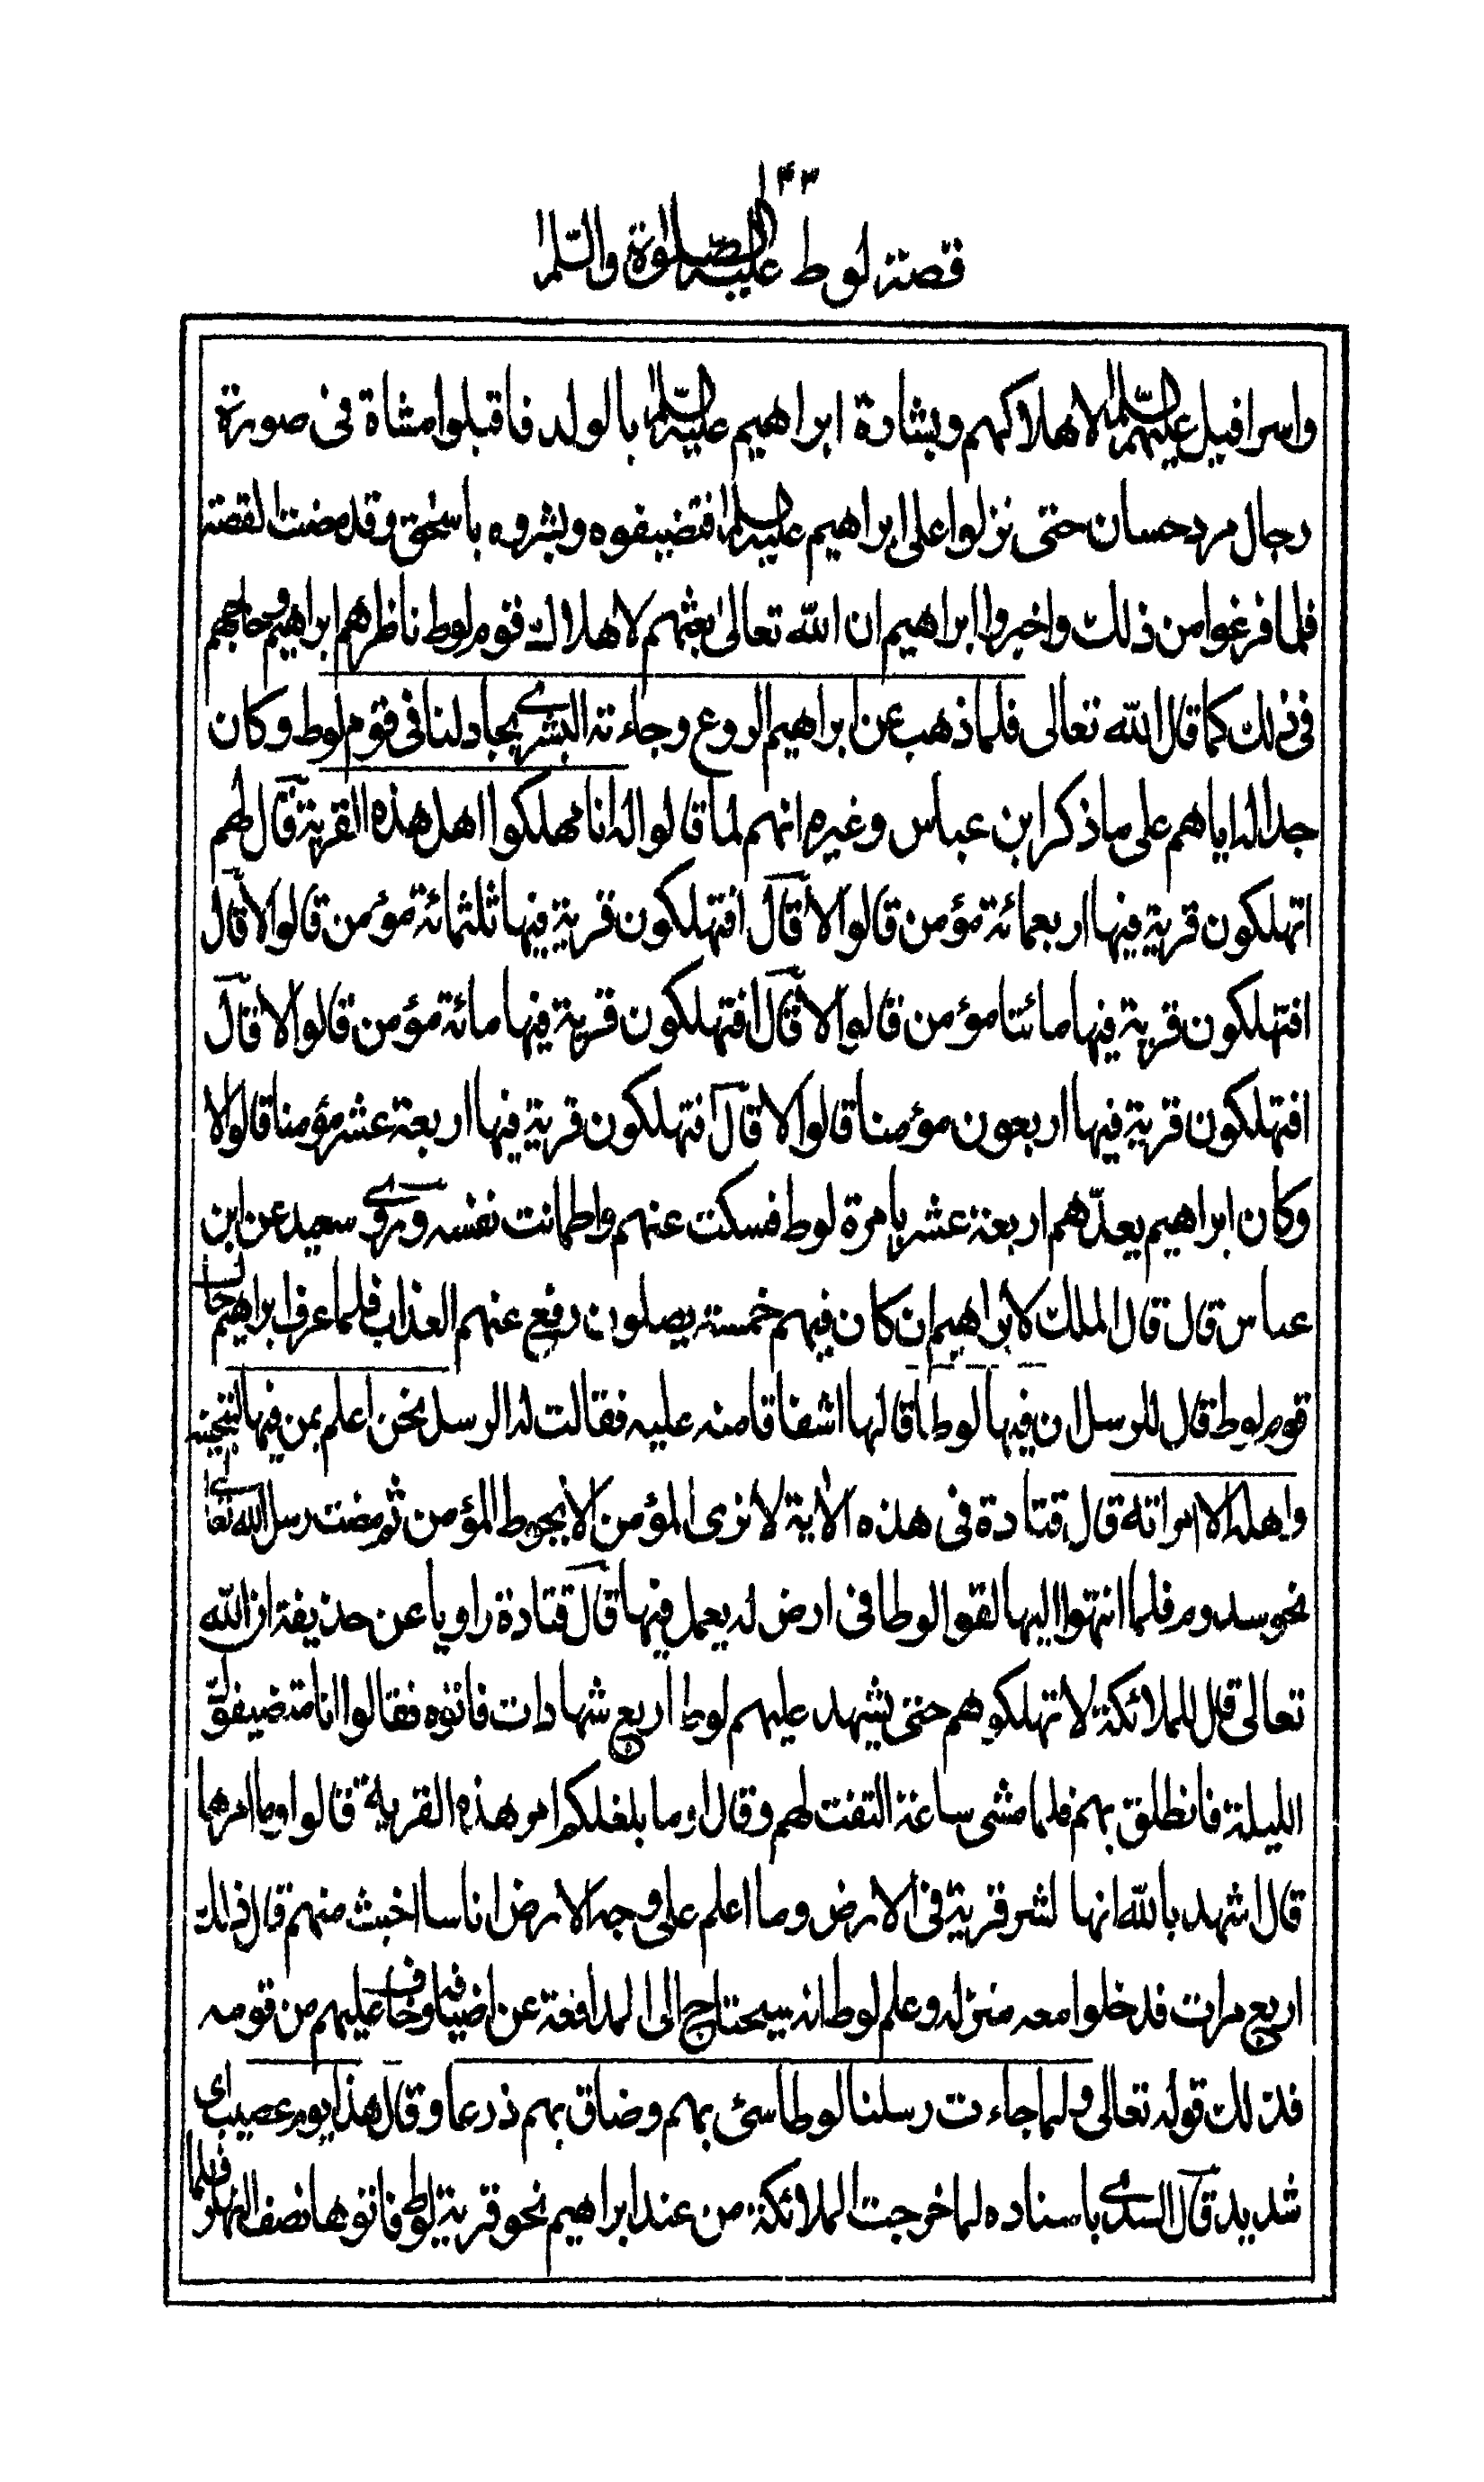 ١٤٣
قصة لوط عليه الصلوة والسلم
واسرافيل عليهم السلم لاهلاكهم وبشارة ابراهيم عليه السلم بالولد فاقبلوا مشاة فى صورة
رجال مرد حسان حتى نزلوا على ابراهيم عليه السلم فتضيفوه وبشروه باسحق وقد مضت القصة
فلما فرغوا من ذلك واخبروا ابراهيم ان الله تعالى بعثهم لاهلاك قوم لوط ناظرهم ابراهيم وحاجهم
فى ذلك كما قال الله تعالى فلما ذهب عن ابراهيم الروع وجاءته البشرى يجادلنا فى قوم لوط وكان
جداله اياهم على ما ذكر ابن عباس وغيره انهم لما قالوا له انا مهلكوا اهل هذه القرية قال لهم
اتهلكون قرية فيها اربعمائة مؤمن قالوا لا قال افتهلكون قرية فيها ثلثمائة مؤمن قالوا لا قال
افتهلكون قرية فيها مائتا مؤمن قالوا لا قال افتهلكون قرية فيها مائة مؤمن قالوا لا قال
افتهلكون قرية فيها اربعون مؤمنا قالوا لا قال افتهلكون قرية فيها اربعة عشر مؤمنا قالوا لا
وكان ابراهيم يعدّهم اربعة عشر بامرة لوط فسكت عنهم واطمانت نفسه وروى سعيد عن ابن
عباس قال قال الملك لابراهيم ان كان فيهم خمسة يصلون رفع عنهم العذاب فلما عرف ابراهيم حال
قوم لوط قال للرسل ان فيها لوطا قالها اشفاقا منه عليه فقالت له الرسل نحن اعلم بمن فيها لننجينه
واهله الا امراته قال قتادة فى هذه الاية لا نرى المؤمن الا يحوط المؤمن ثم مضت رسل الله تعالى
نحو سدوم فلما انتهوا اليها لقوا لوطا فى ارض له يعمل فيها قال قتادة راويا عن حذيفة ان الله
تعالى قال للملائكة لا تهلكوهم حتى يشهد عليهم لوط اربع شهادات فاتوه فقالوا انا متضيفوك
الليلة فانطلق بهم فلما مشى ساعة التفت لهم وقال اوما بلغلكم امر هذه القرية قالوا وما امرها
قال اشهد بالله انها لشر قرية فى الارض وما اعلم على وجه الارض اناسا اخبث منهم قال ذلك
اربع مرات فدخلوا معه منزله وعلم لوط انه سيحتاج الى المدافعة عن اضيافه وخاف عليهم من قومه
فذلك قوله تعالى ولما جاءت رسلنا لوطا سئ بهم وضاق بهم ذرعا وقال هذا يوم عصيب اى
شديد قال السدى باسناده لما خرجت الملائكة من عند ابراهيم نحو قرية لوط فاتوها نصف النهار فلما